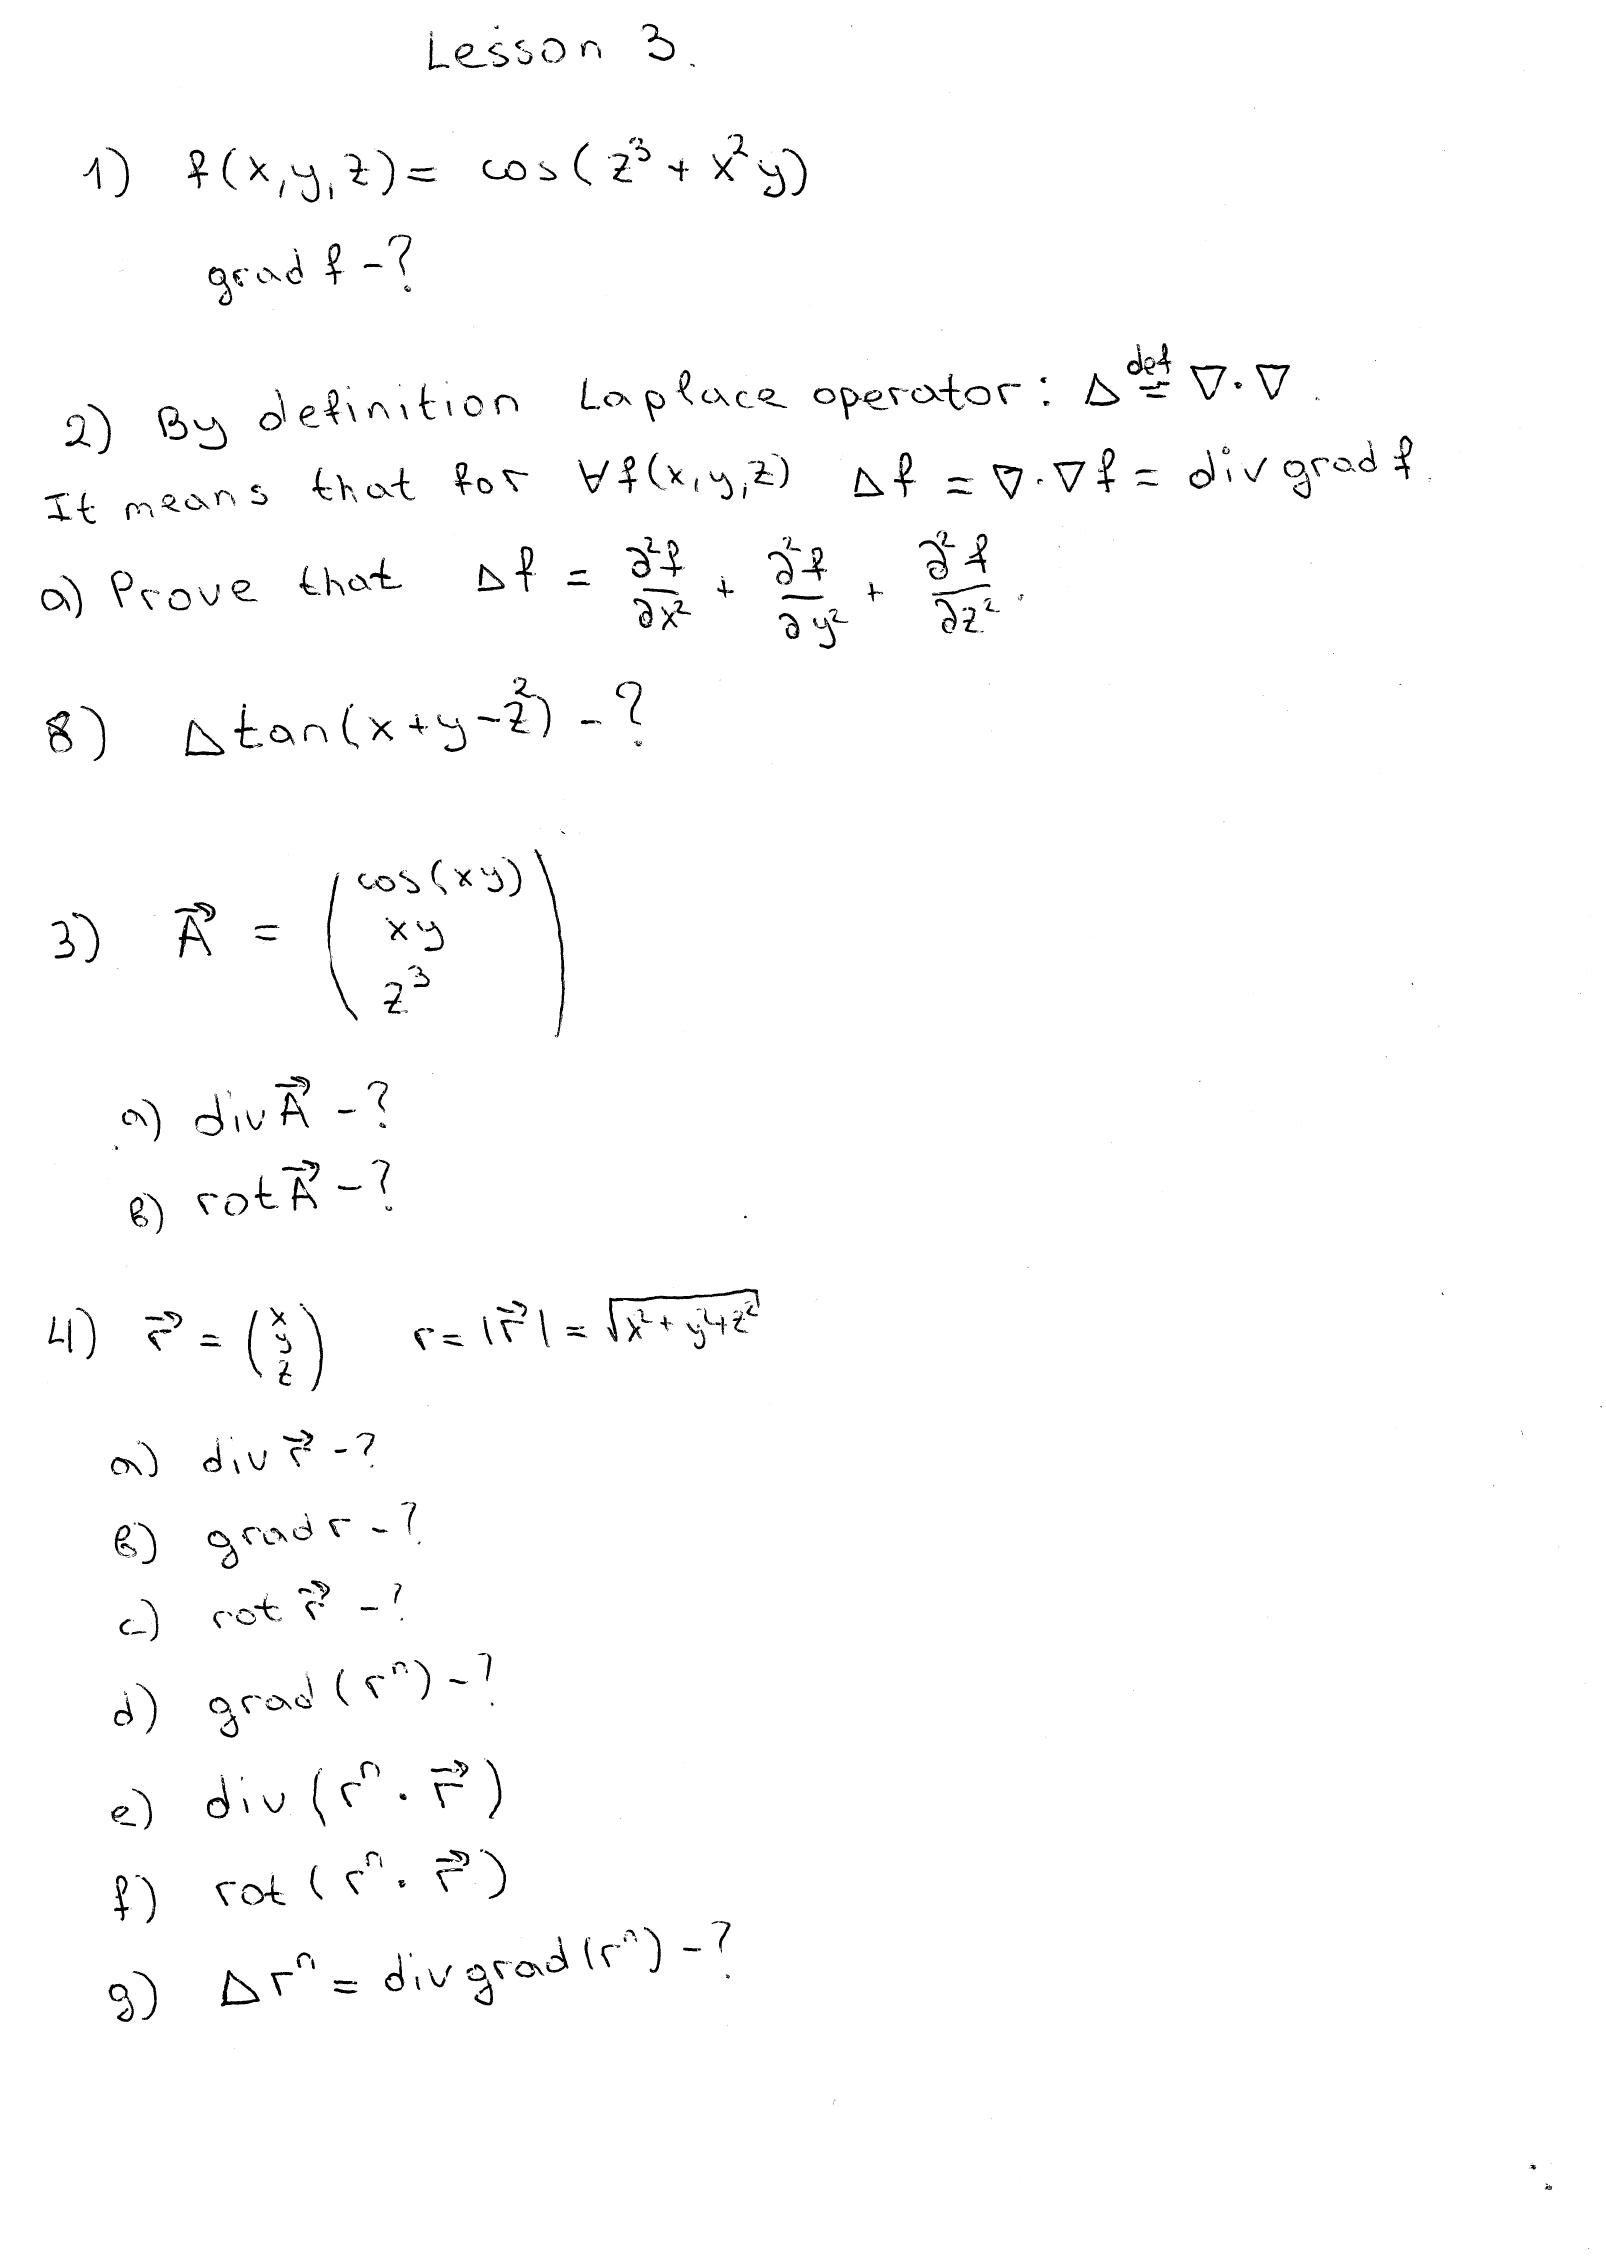 Lesson 3.
1) f(x,y,z) = cos(z³ + x²y)
grad f - ?
2) By definition Laplace operator: Δ def= ∇·∇.
It means that for ∀f(x,y,z) Δf = ∇·∇f = div grad f.
a) Prove that Δf = ∂²f/∂x² + ∂²f/∂y² + ∂²f/∂z².
в) Δtan(x+y-z²) - ?
3) A⃗ = (cos(xy)
xy
z³)
a) div A⃗ - ?
в) rot A⃗ - ?
4) r⃗ = (x y z) r = |r⃗| = √(x²+y²+z²)
a) div r⃗ - ?
в) grad r - ?
c) rot r⃗ - ?
d) grad(rⁿ) - ?
e) div(rⁿ · r⃗)
f) rot(rⁿ · r⃗)
g) Δrⁿ = div grad(rⁿ) - ?